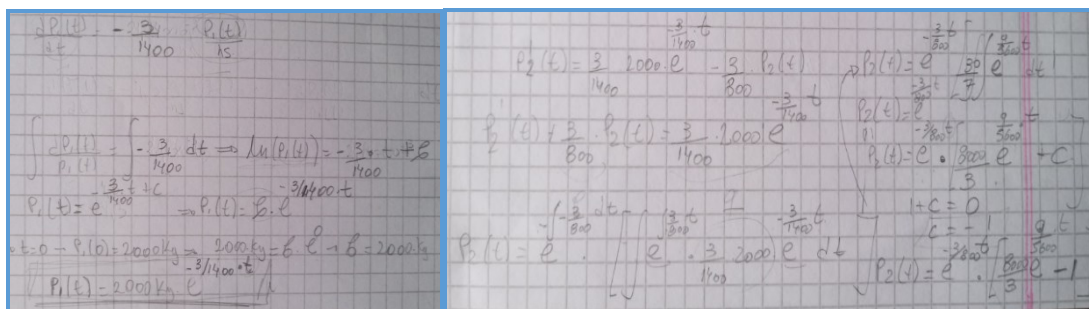 dP₁(t)/dt = -3/1400 P₁(t)/
∫ dP₁(t)/P₁(t) = ∫ -3/1400 dt ⇒ ln(P₁(t)) = -3/1400 · t + 
P₁(t) = e^(-3/1400 t + c) ⇒ P₁(t) = b · e^(-3/1400 · t)
t=0 → P₁(0) = 2000kg → 2000kg = b · e → b = 2000kg
P₁(t) = 2000kg e^(-3/1400 · t)
P₂(t) = 3/1400 2000 · e^(-3/1400 · t) - 3/800 · P₂(t)
P₂(t) + 3/800 · P₂(t) = 3/1400 · 2000 e^(-3/1400 t)
P₂(t) = e^(-∫ -3/800 dt) · [ ∫ e^(∫ 3/800 t) · 3/1400 2000 e^(-3/1400 t) dt
P₂(t) = e^(-3/800 t) [ 30/7 ∫ e^(9/5600 t) dt
P₂(t) = e
P₂(t) = e^(-3/800 t) · [ 8000/3 e^(9/5600 t) + C ]
1 + c = 0
c = -1
P₂(t) = e^(-3/800 t) · [ 8000/3 e^(9/5600 t) - 1